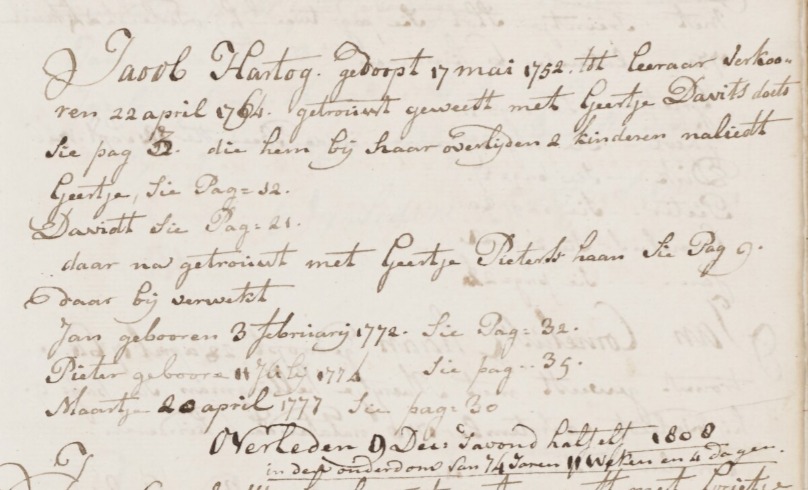 Jacob Hartog. gedoopt 17 mai 1752. tot leeraar verkoo-
ren 22 april 1764. getrouwt geweest met Geertje Davits docts
Sie pag 32. die hem bij haar overlijden 2 kinderen naliedt
Geertje, Sie Pag= 12.
Davidt Sie Pag= 21.
daar na getrouwt met Geertje Pieters haan Sie Pag 9.
daar bij verwekt
Jan gebooren 3 februarij 1772. Sie Pag= 32.
Pieter geboore 11 July 1774 Sie pag= 35.
Maartje 20 april 1777 Sie pag= 30
Overleden 9 Dec: savond half 1808
in den ouderdom van 74 Jaren 11 weken en 4 dagen.
met